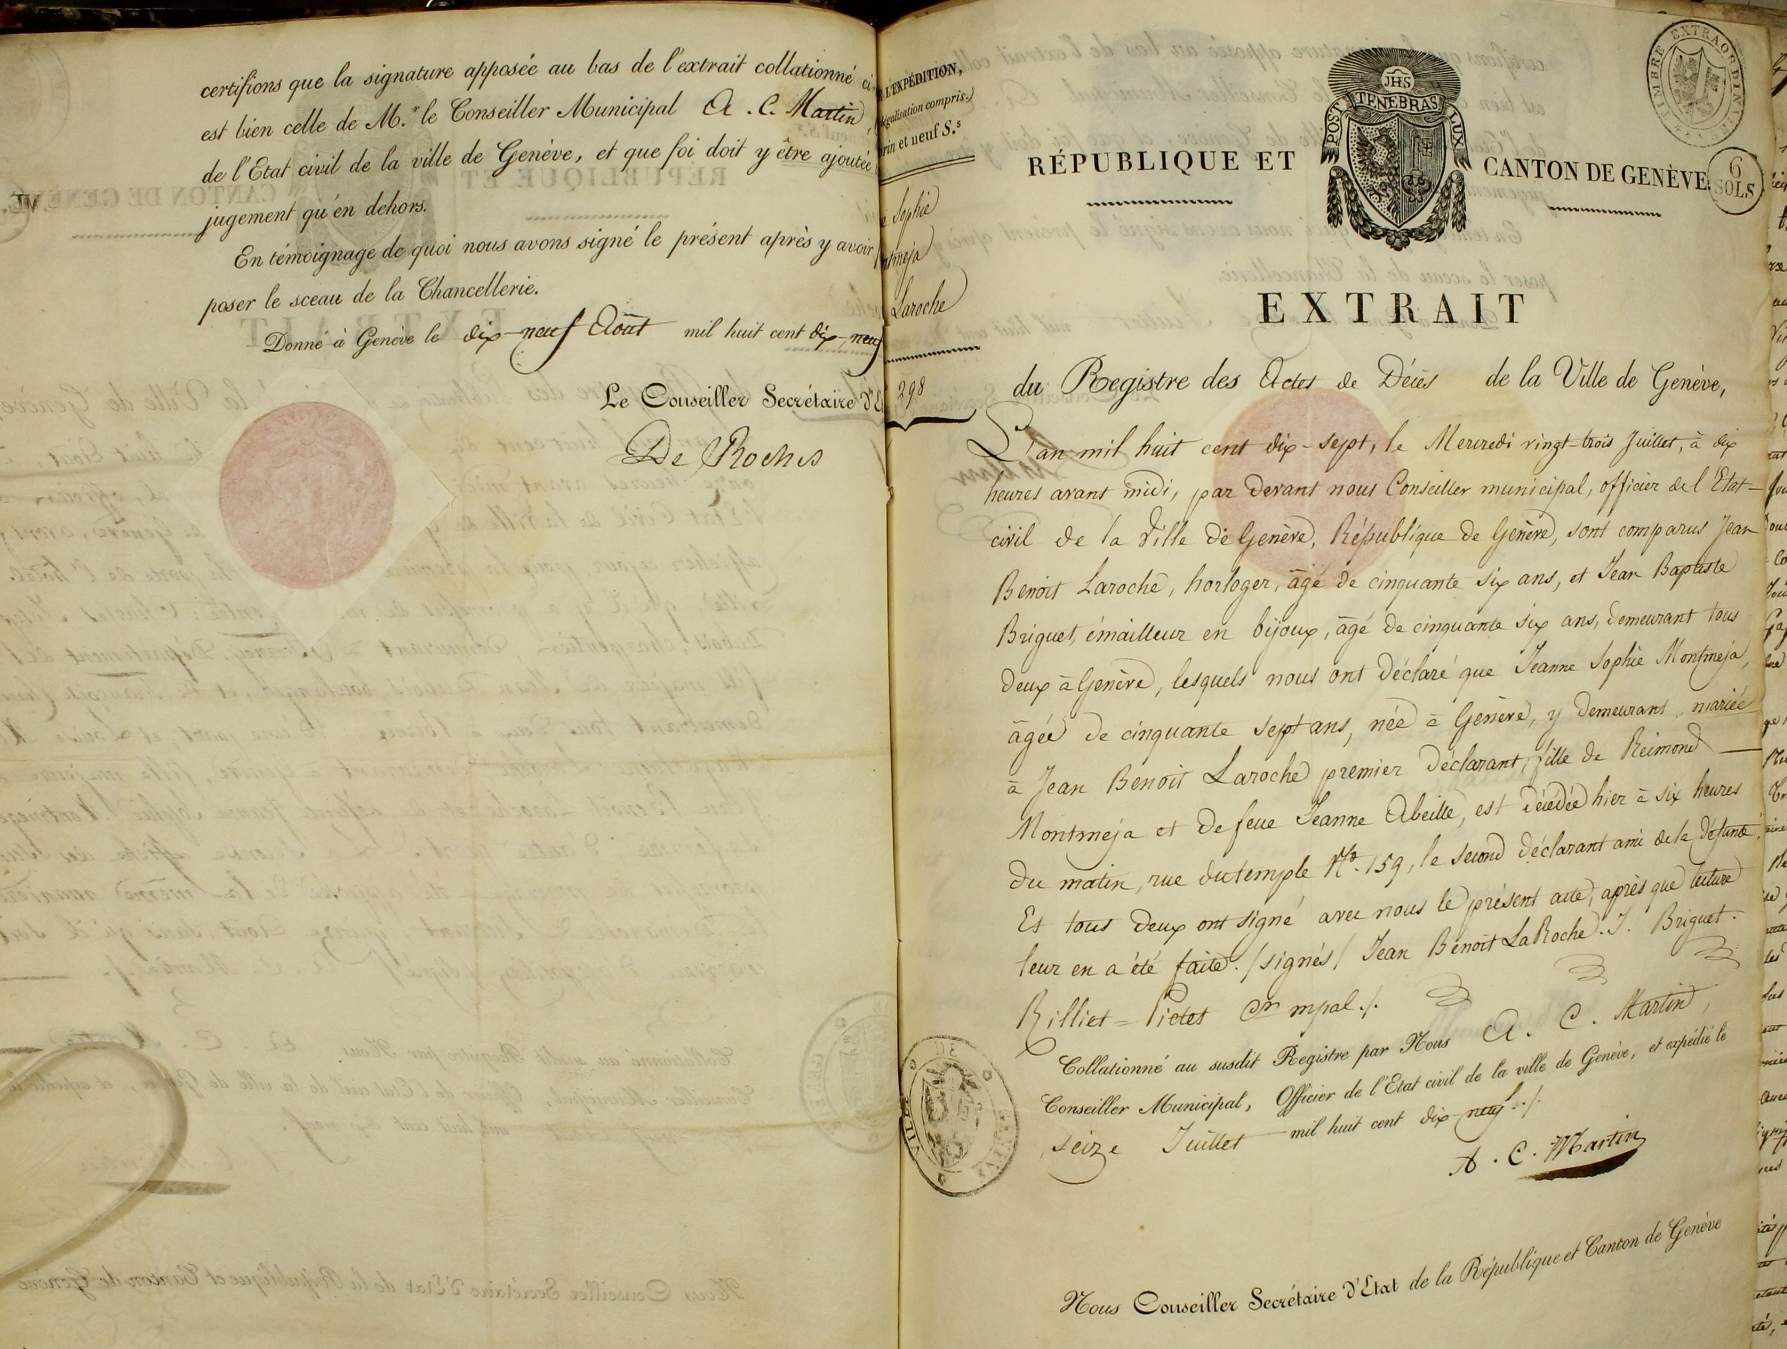 certifions que la signature apposée au bas de l'extrait collationné ci-
est bien celle de M.r le Conseiller Municipal A. C. Martin,
de l'Etat civil de la ville de Genève, et que foi doit y être ajoutée
jugement qu'en dehors.
En témoignage de quoi nous avons signé le présent après y avoir
poser le sceau de la Chancellerie.
Donné à Genève le dix-neuf Août mil huit cent dix-neuf
Le Conseiller Secrétaire d'E
De Roches
L'EXPÉDITION,
légalisation compris.)
rin et neuf S.s
e Sophie
ntmeja
Laroche
298
TIMBRE EXTRAORDINAIRE
6
SOLS
JHS
POST TENEBRAS LUX
RÉPUBLIQUE ET CANTON DE GENÈVE.
EXTRAIT
du Registre des Actes de Décès de la Ville de Genève,
L'an mil huit cent dix-sept, le Mercredi vingt-trois Juillet, à dix
heures avant midi, par devant nous Conseiller municipal, officier de l'Etat-
civil de la Ville de Genève, République de Genève, sont comparus Jean
Benoit Laroche, horloger, âgé de cinquante six ans, et Jean Baptiste
Briguet, émailleur en bijoux, âgé de cinquante six ans, demeurant tous
deux à Genève, lesquels nous ont déclaré que Jeanne Sophie Montmeja,
âgée de cinquante sept ans, née à Genève, y demeurant, mariée
à Jean Benoit Laroche premier déclarant, fille de Reimond
Montmeja et de feue Jeanne Abeille, est décédée hier à six heures
du matin, rue du temple No. 159, le second déclarant ami de la défunte.
Et tous deux ont signé avec nous le présent acte, après que lecture
leur en a été faite. /signés/ Jean Benoit LaRoche. J. Briguet.
Rilliet=Pictet Cer mpal./.
Collationné au susdit Registre par Nous A. C. Martin,
Conseiller Municipal, Officier de l'Etat civil de la ville de Genève, et expédié le
seize Juillet mil huit cent dix-neuf./.
A. C. Martin
VILLE DE GENEVE
Nous Conseiller Secrétaire d'Etat de la République et Canton de Genève